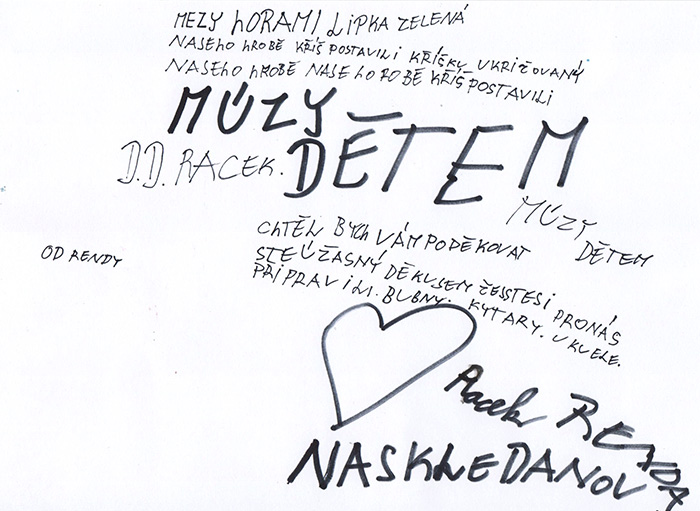 MEZY HORAMI LIPKA ZELENÁ
NASEHO HROBĚ KŘÍŠ POSTAVILI KŘÍŠKY UKRIŽOVANÝ
NASEHO HROBĚ NASEHO ROBĚ KŘÍŠ POSTAVILI
MÚZY
DĚTEM
D.D. RACEK.
MÚZY
DĚTEM
CHTĚL BYCH VÁM PODĚKOVAT
STE ÚŽASNÝ DĚKUJEM ŽESSTESI PRONÁS
PŘIPRAVILI. BUBNY. KYTARY. UKUELE.
OD RENDY
Racek RENDA
NASKHLEDANOV